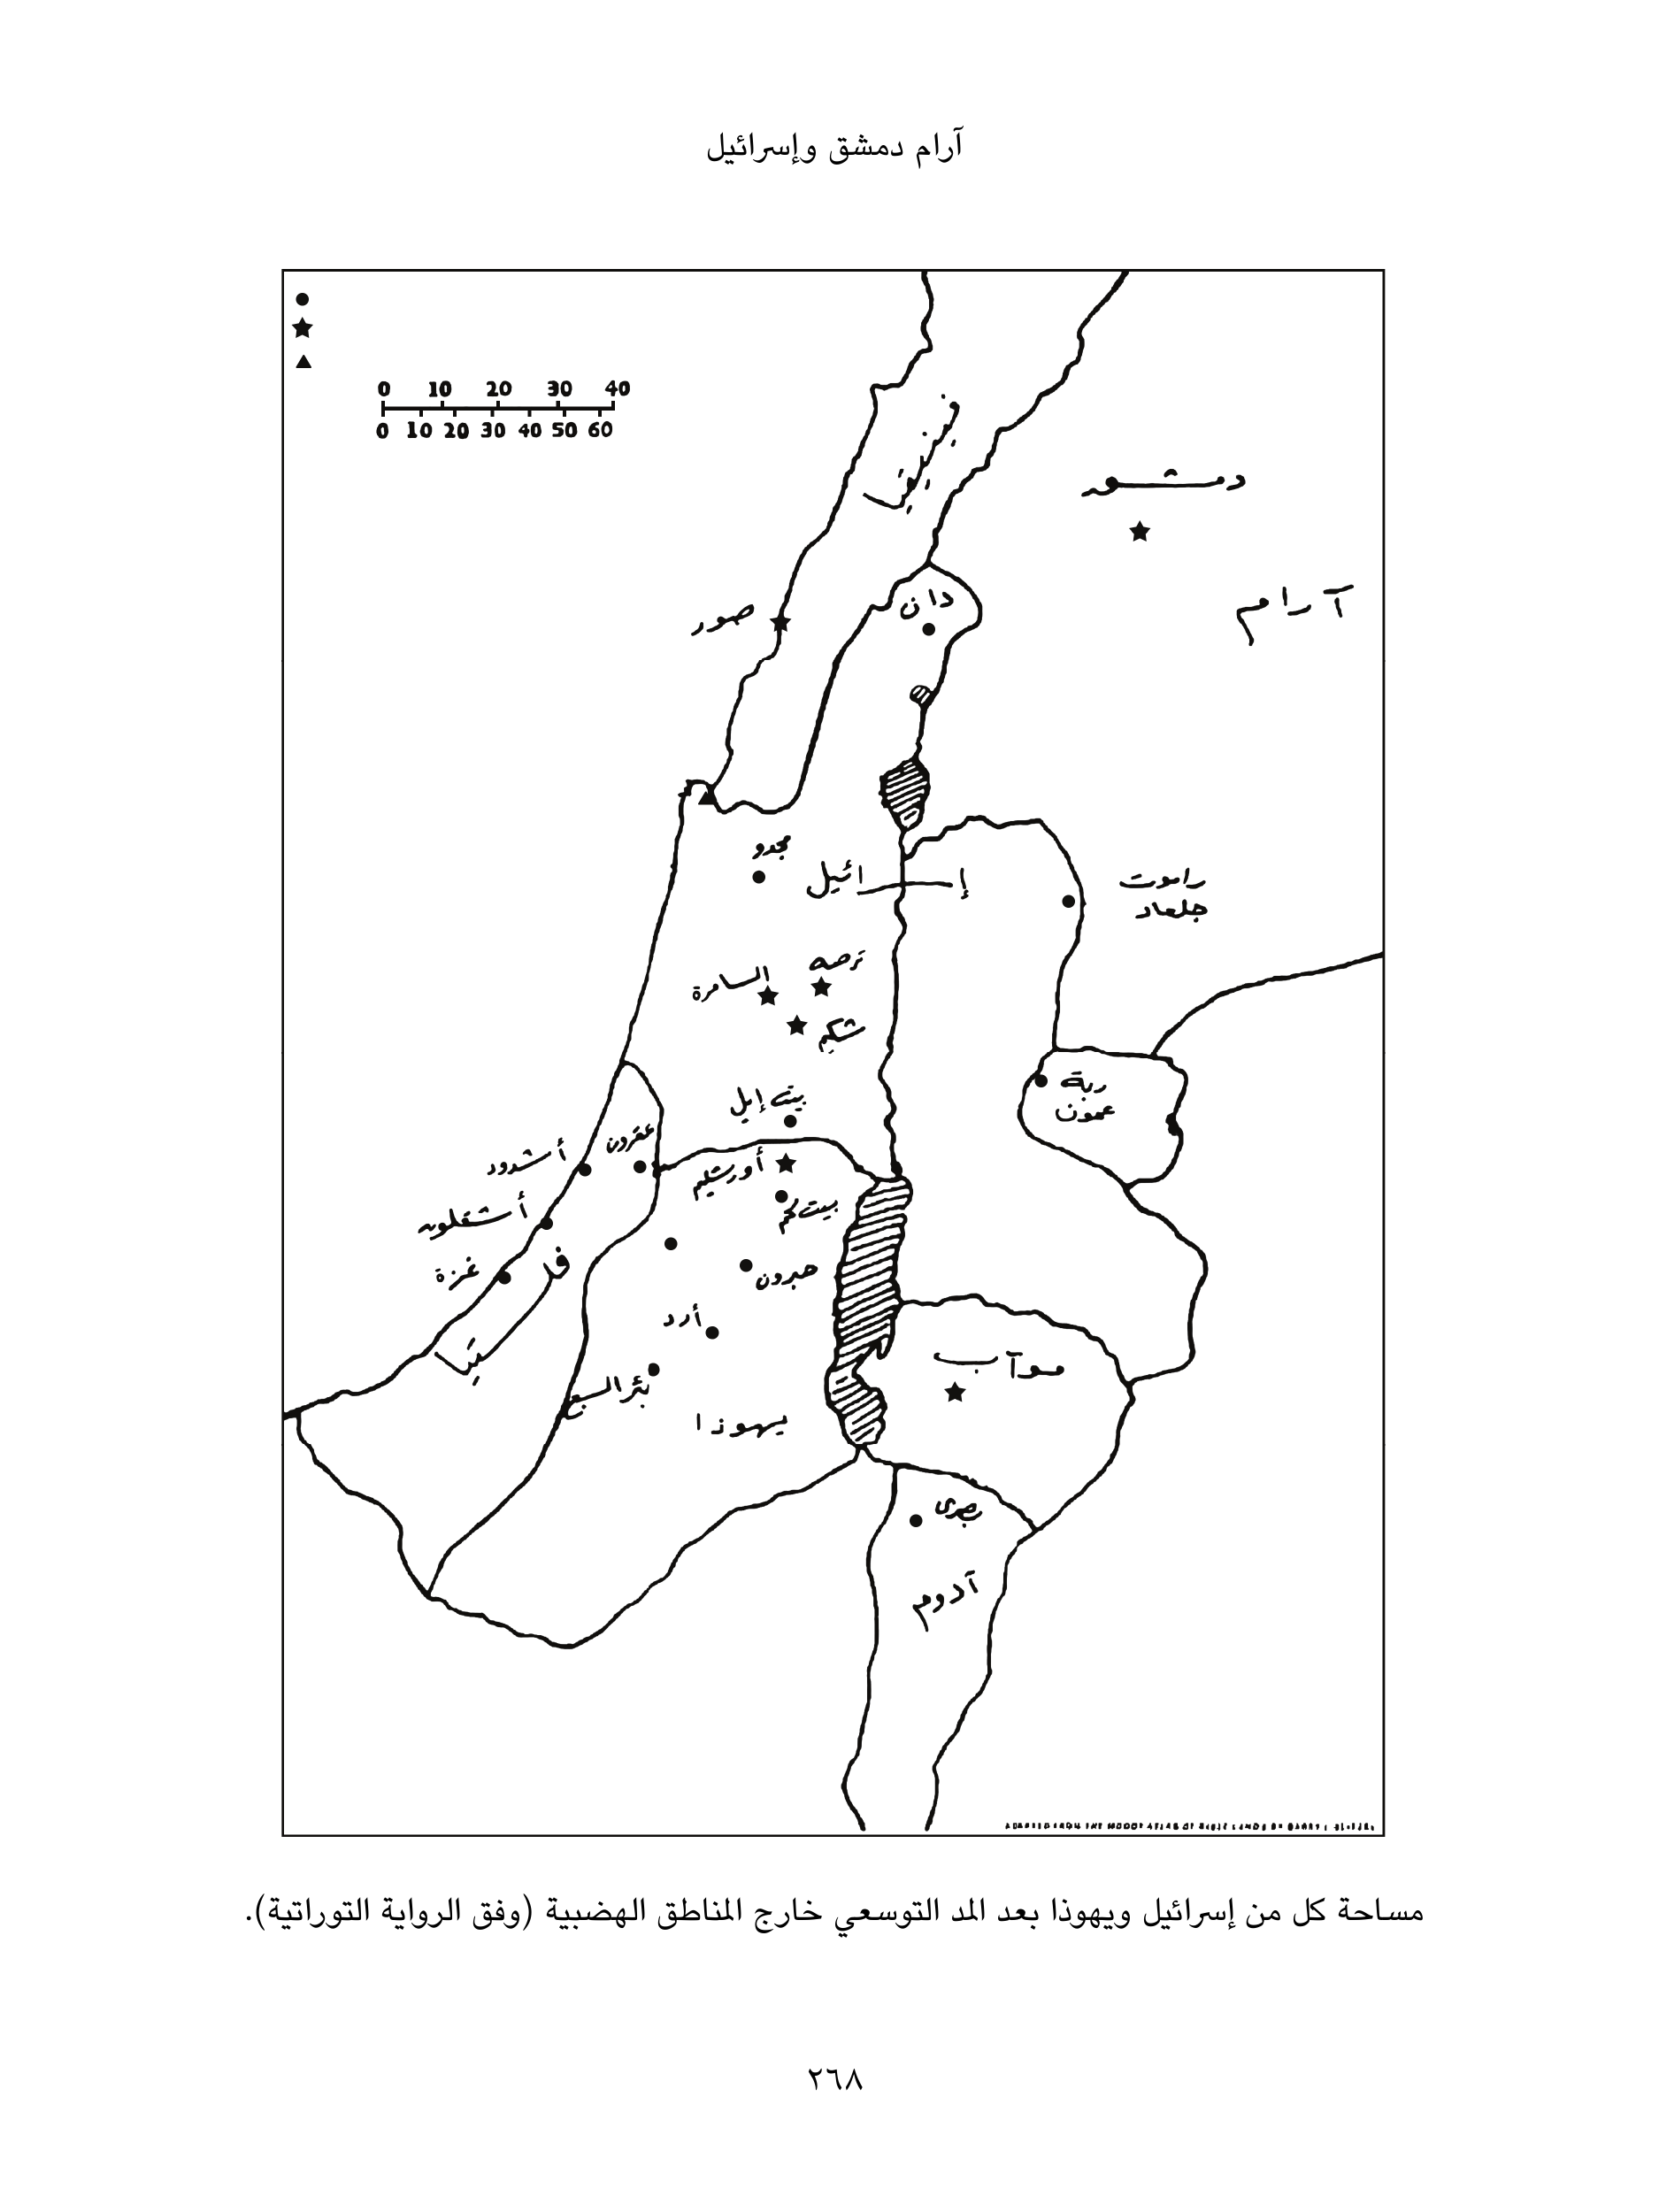 آرام دمشق وإسرائيل
0 10 20 30 40
0 10 20 30 40 50 60
دمشق
آرام
صور
دان
مجدو
إسرائيل
راموت
جلعاد
ترصه
السامرة
شكيم
ربة
عمون
بيت إيل
عقرون
أشدود
أورشليم
بيت لحم
أشقلون
غزة
حبرون
أرد
بئر السبع
يهوذا
موآب
بصرى
آدوم
مساحة كل من إسرائيل ويهوذا بعد المد التوسعي خارج المناطق الهضبية (وفق الرواية التوراتية).
٢٦٨